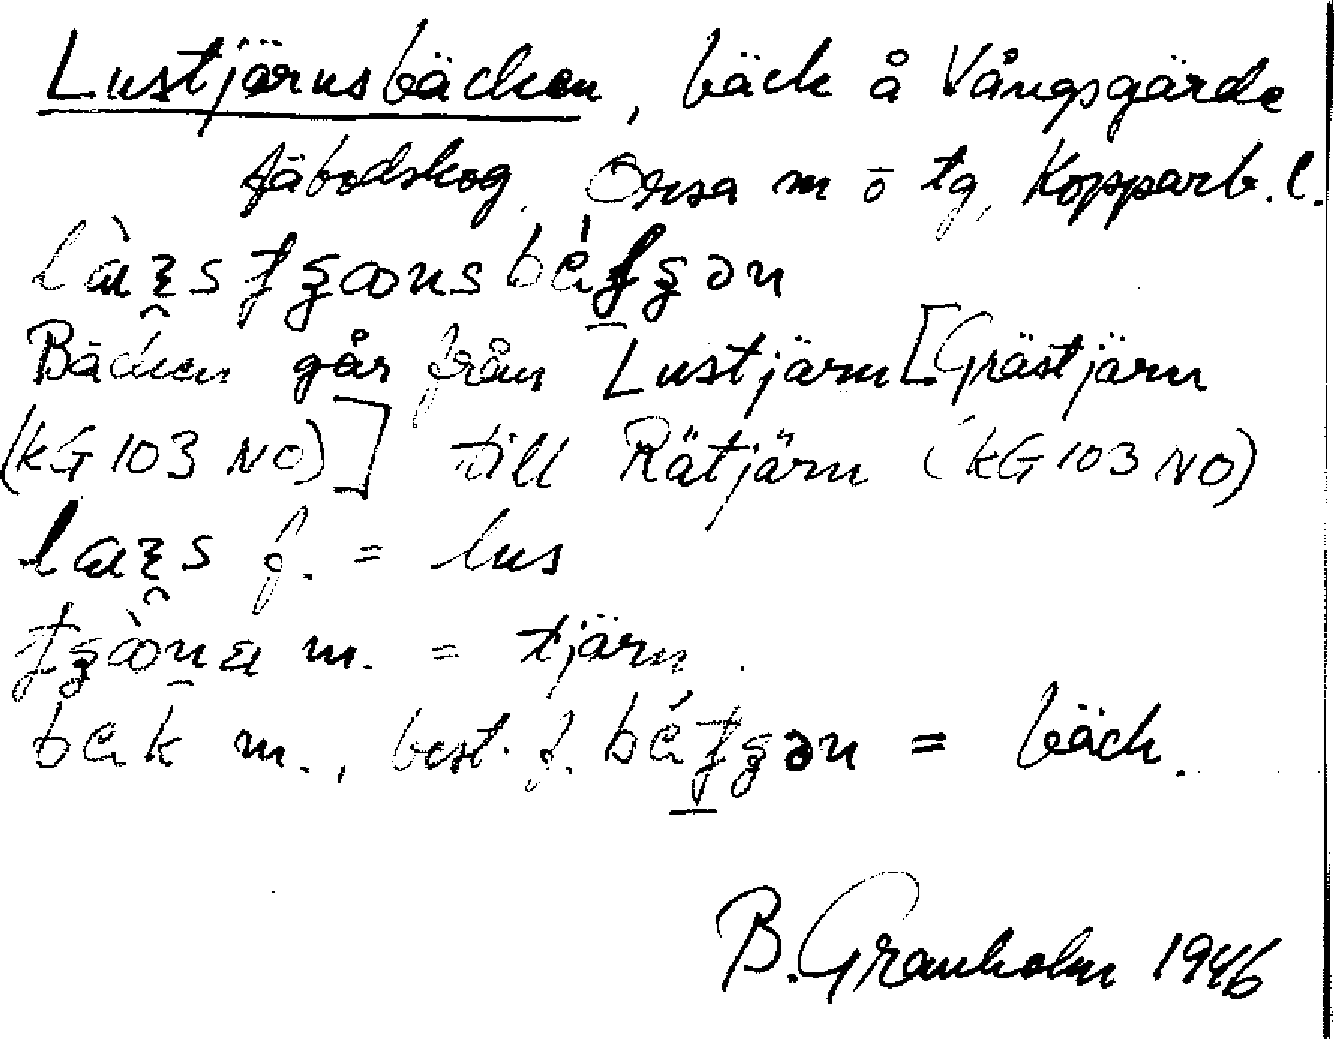 Lustjärnsbäcken, bäck å Vångsgärde
fäbodskog, Orsa m o tg, Kopparb. l.
Bäcken går från Lustjärn [Grästjärn
(KG 103 NO)] till Rätjärn (KG 103 NO)
f. = lus
m. = tjärn.
m., best. f. = bäck.
B. Granholm 1946